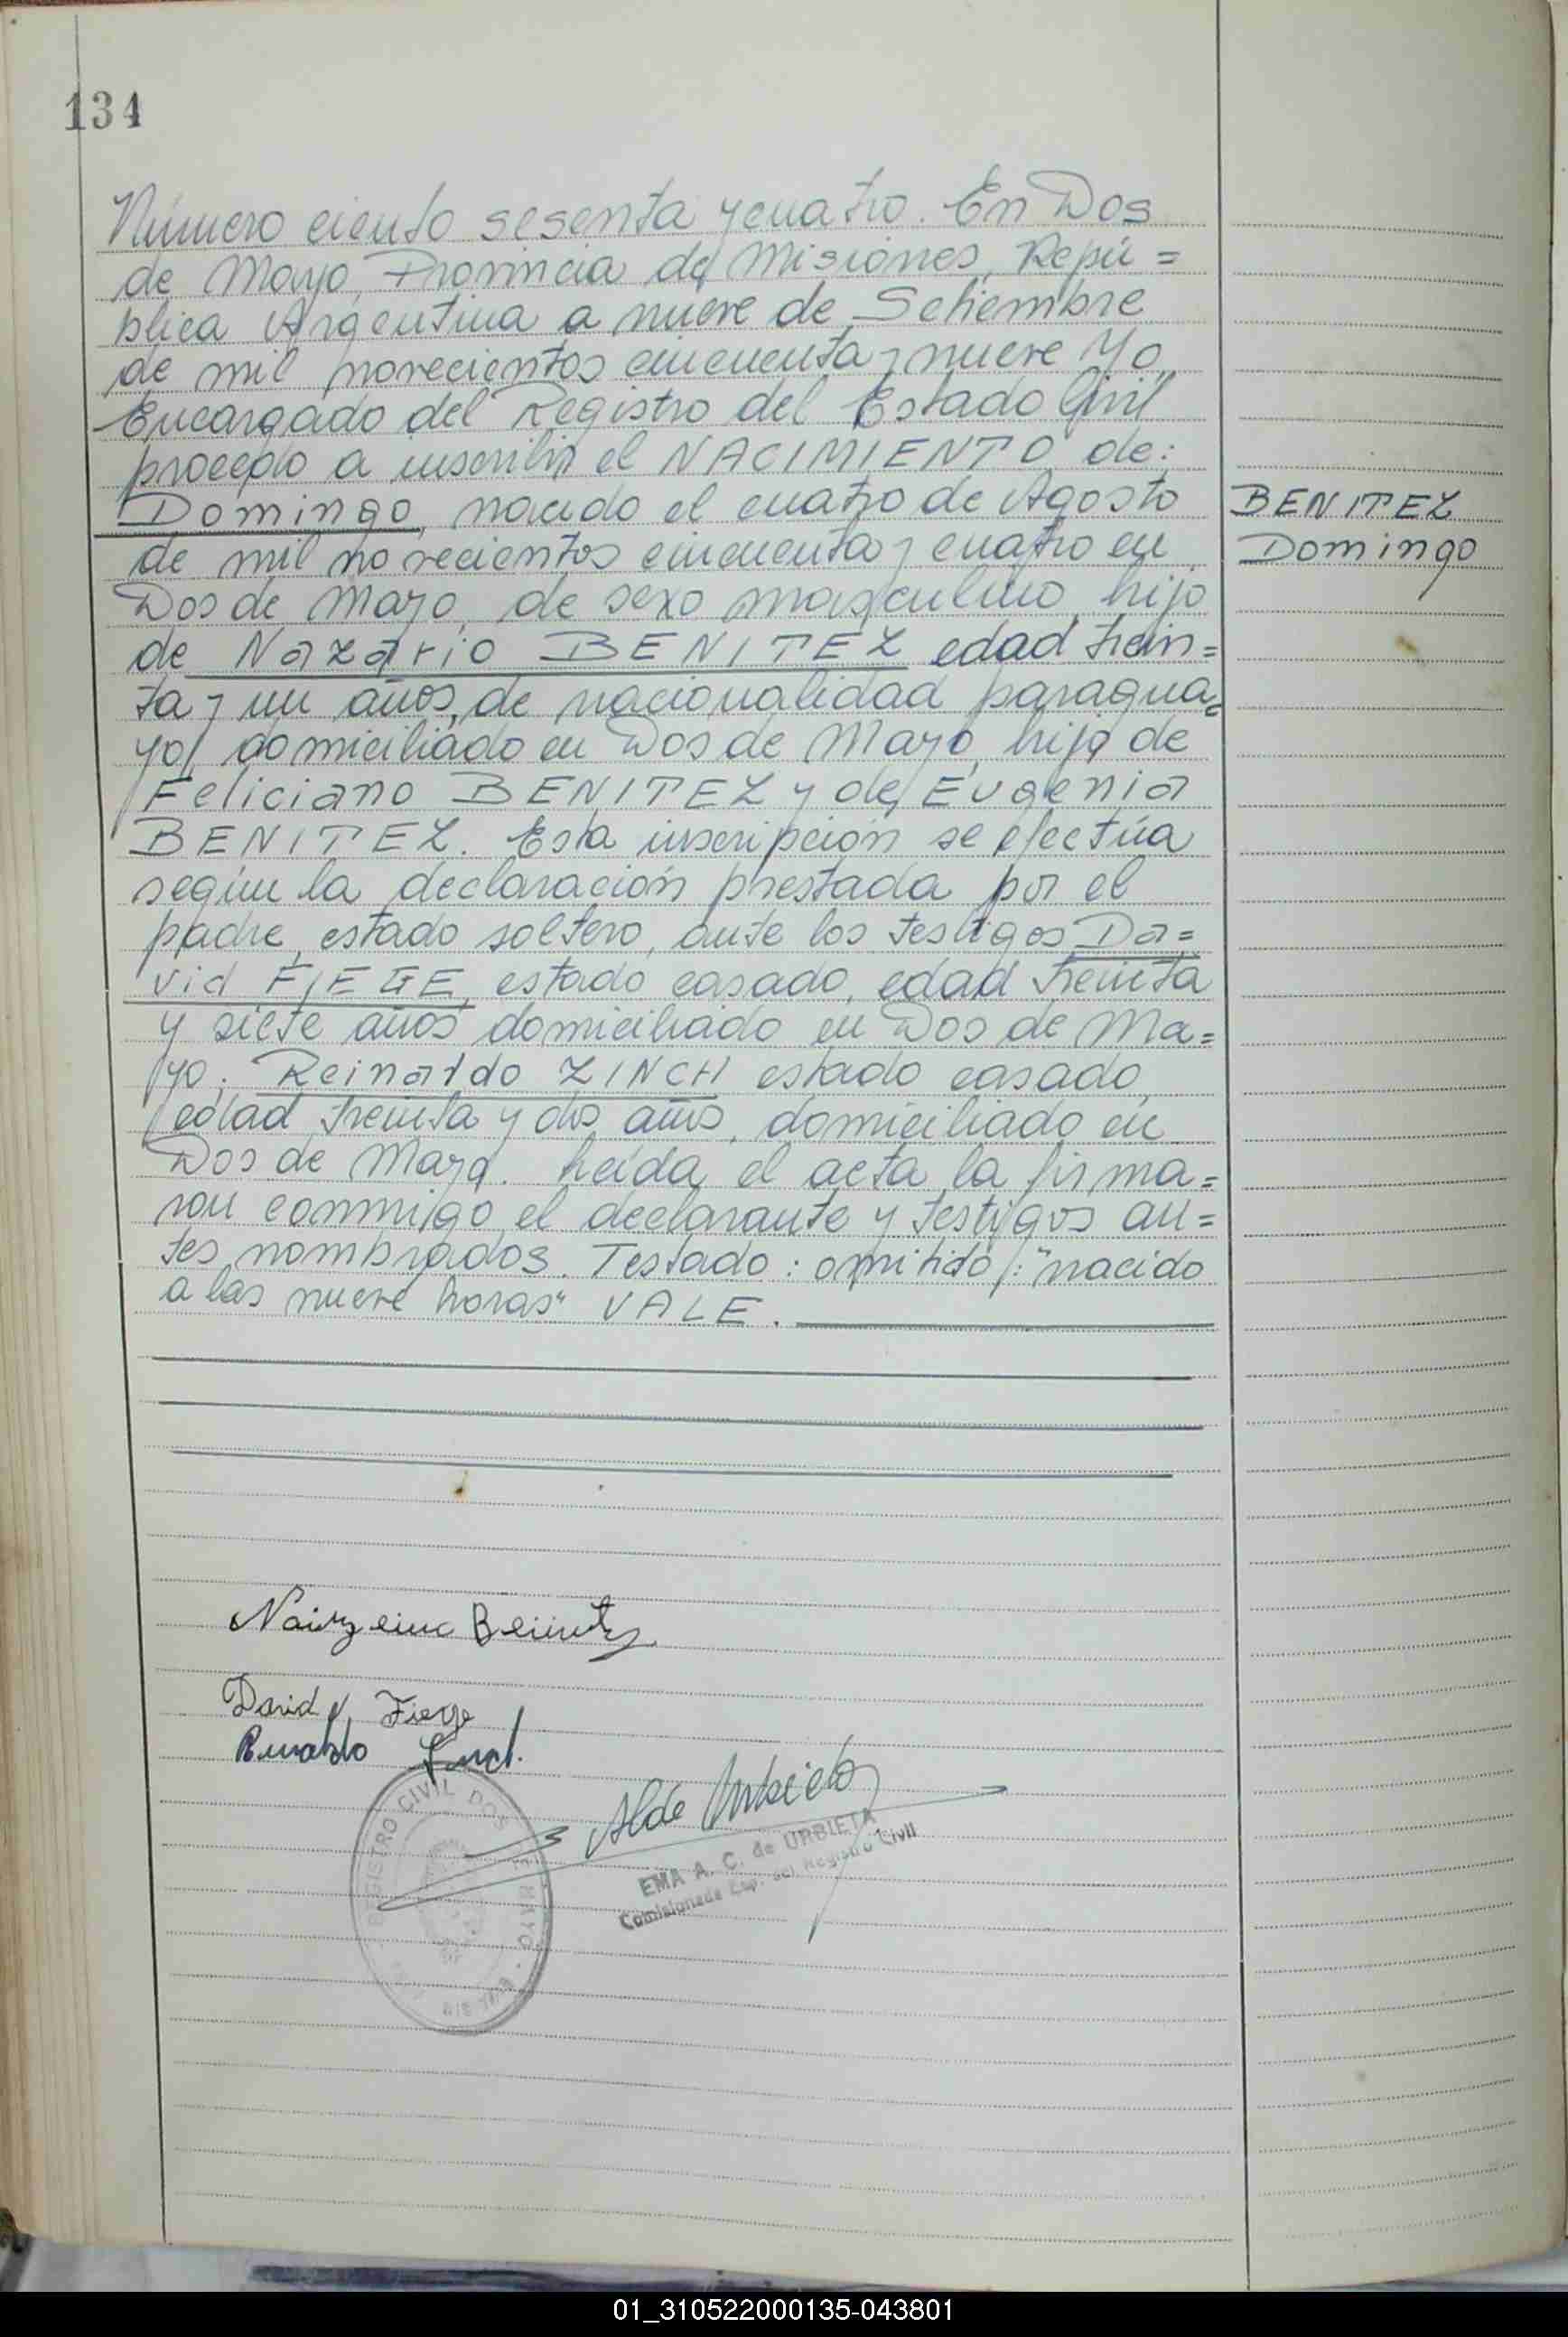 134
Número ciento sesenta y cuatro. En Dos
de Mayo, Provincia de Misiones, Repú=
blica Argentina a nueve de Setiembre
de mil novecientos cincuenta y nueve Yo,
Encargado del Registro del Estado Civil
procedo a inscribir el NACIMIENTO de:
Domingo, nacido el cuatro de Agosto
BENITEZ
de mil novecientos cincuenta y cuatro en
Domingo
Dos de Mayo, de sexo masculino, hijo
de Nazario BENITEZ edad trein=
ta y un años, de nacionalidad paragua=
yo, domiciliado en Dos de Mayo, hijo de
Feliciano BENITEZ y de Eugenia
BENITEZ. Esta inscripción se efectúa
según la declaración prestada por el
padre, estado soltero, ante los testigos Da=
vid FIEGE, estado casado, edad treinta
y siete años domiciliado en Dos de Ma=
yo; Reinaldo ZINCH estado casado,
edad treinta y dos años, domiciliado en
Dos de Mayo. Leída el acta la firma=
ron conmigo el declarante y testigos an=
tes nombrados. Testado: omitido: "nacido
a las nueve horas" VALE.
David Fiege
REGISTRO CIVIL DOS DE MAYO
EMA A. C. de URBIETA
Comisionada Esp. del Registro Civil
01_310522000135-043801